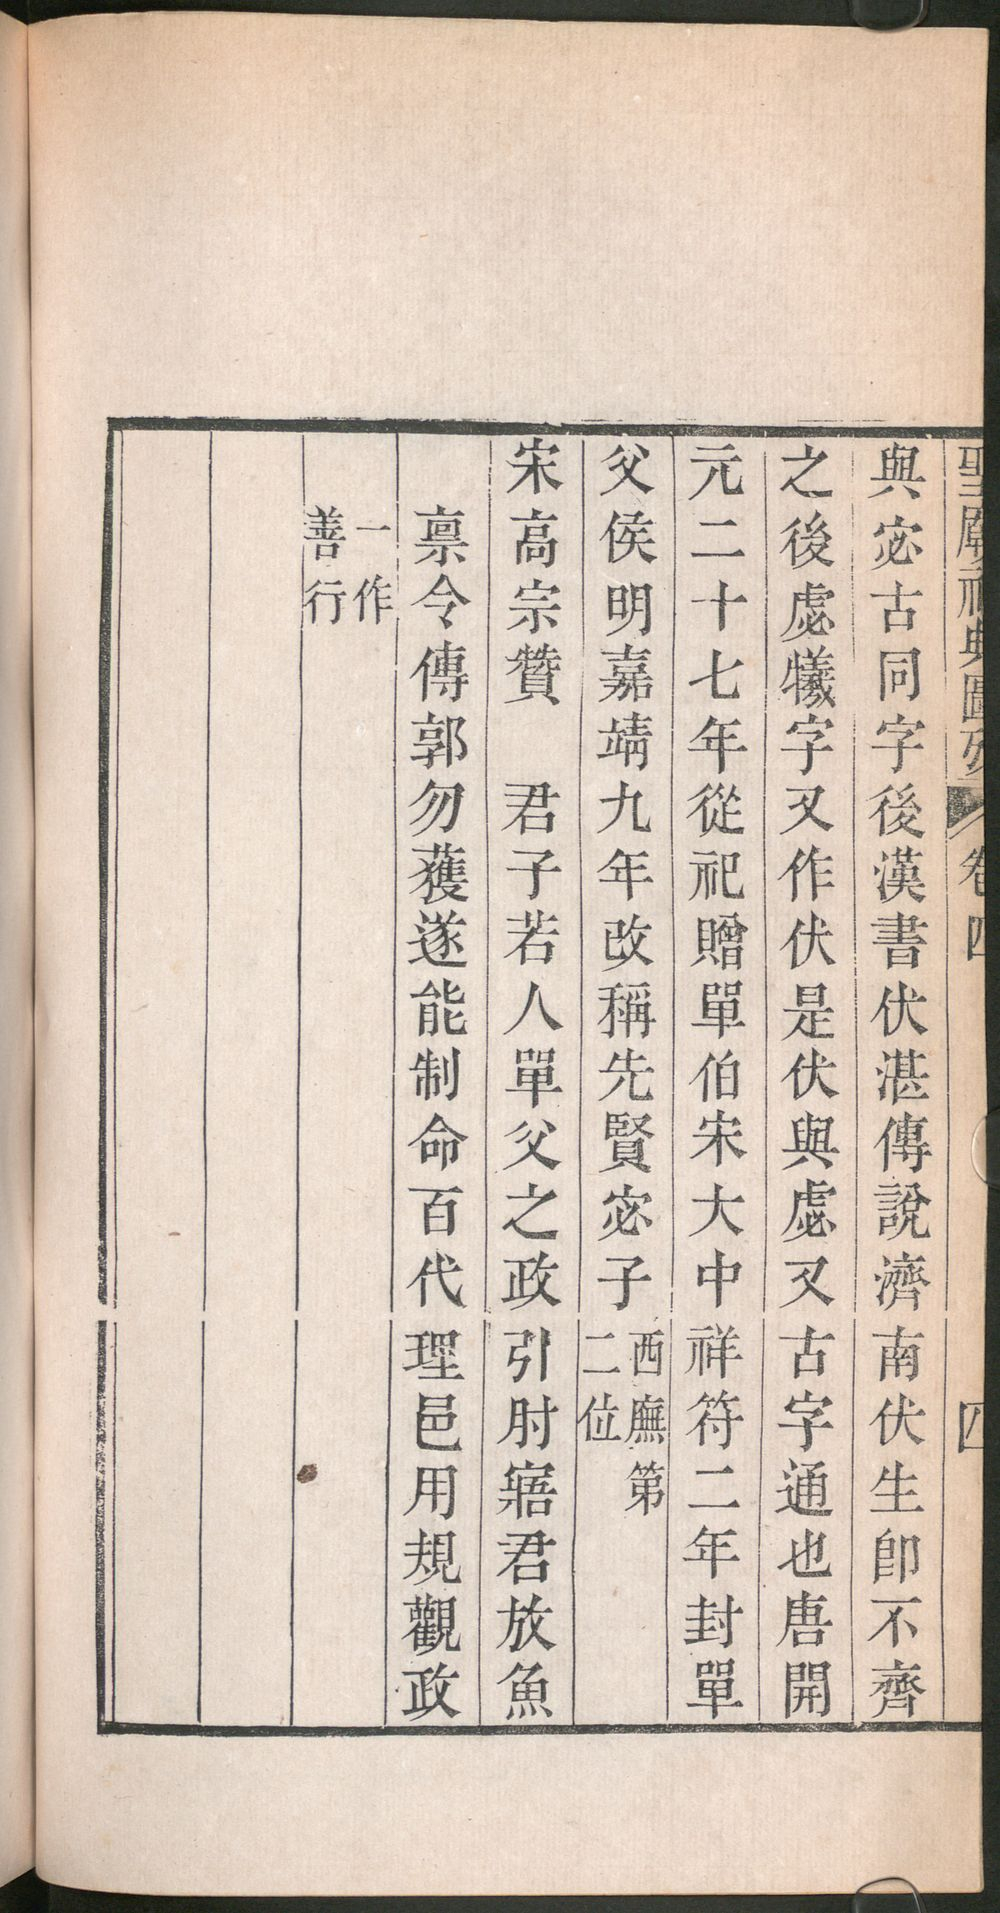 聖廟祀典圖攷 卷四 四
與宓古同字後漢書伏湛傳說濟南伏生卽不齊
之後處犧字又作伏是伏與處又古字通也唐開
元二十七年從祀贈單伯宋大中祥符二年封單
父侯明嘉靖九年改稱先賢宓子西廡第二位
宋高宗贊　君子若人單父之政引肘寤君放魚
禀令傳郭勿獲遂能制命百代理邑用規觀政
一作善行